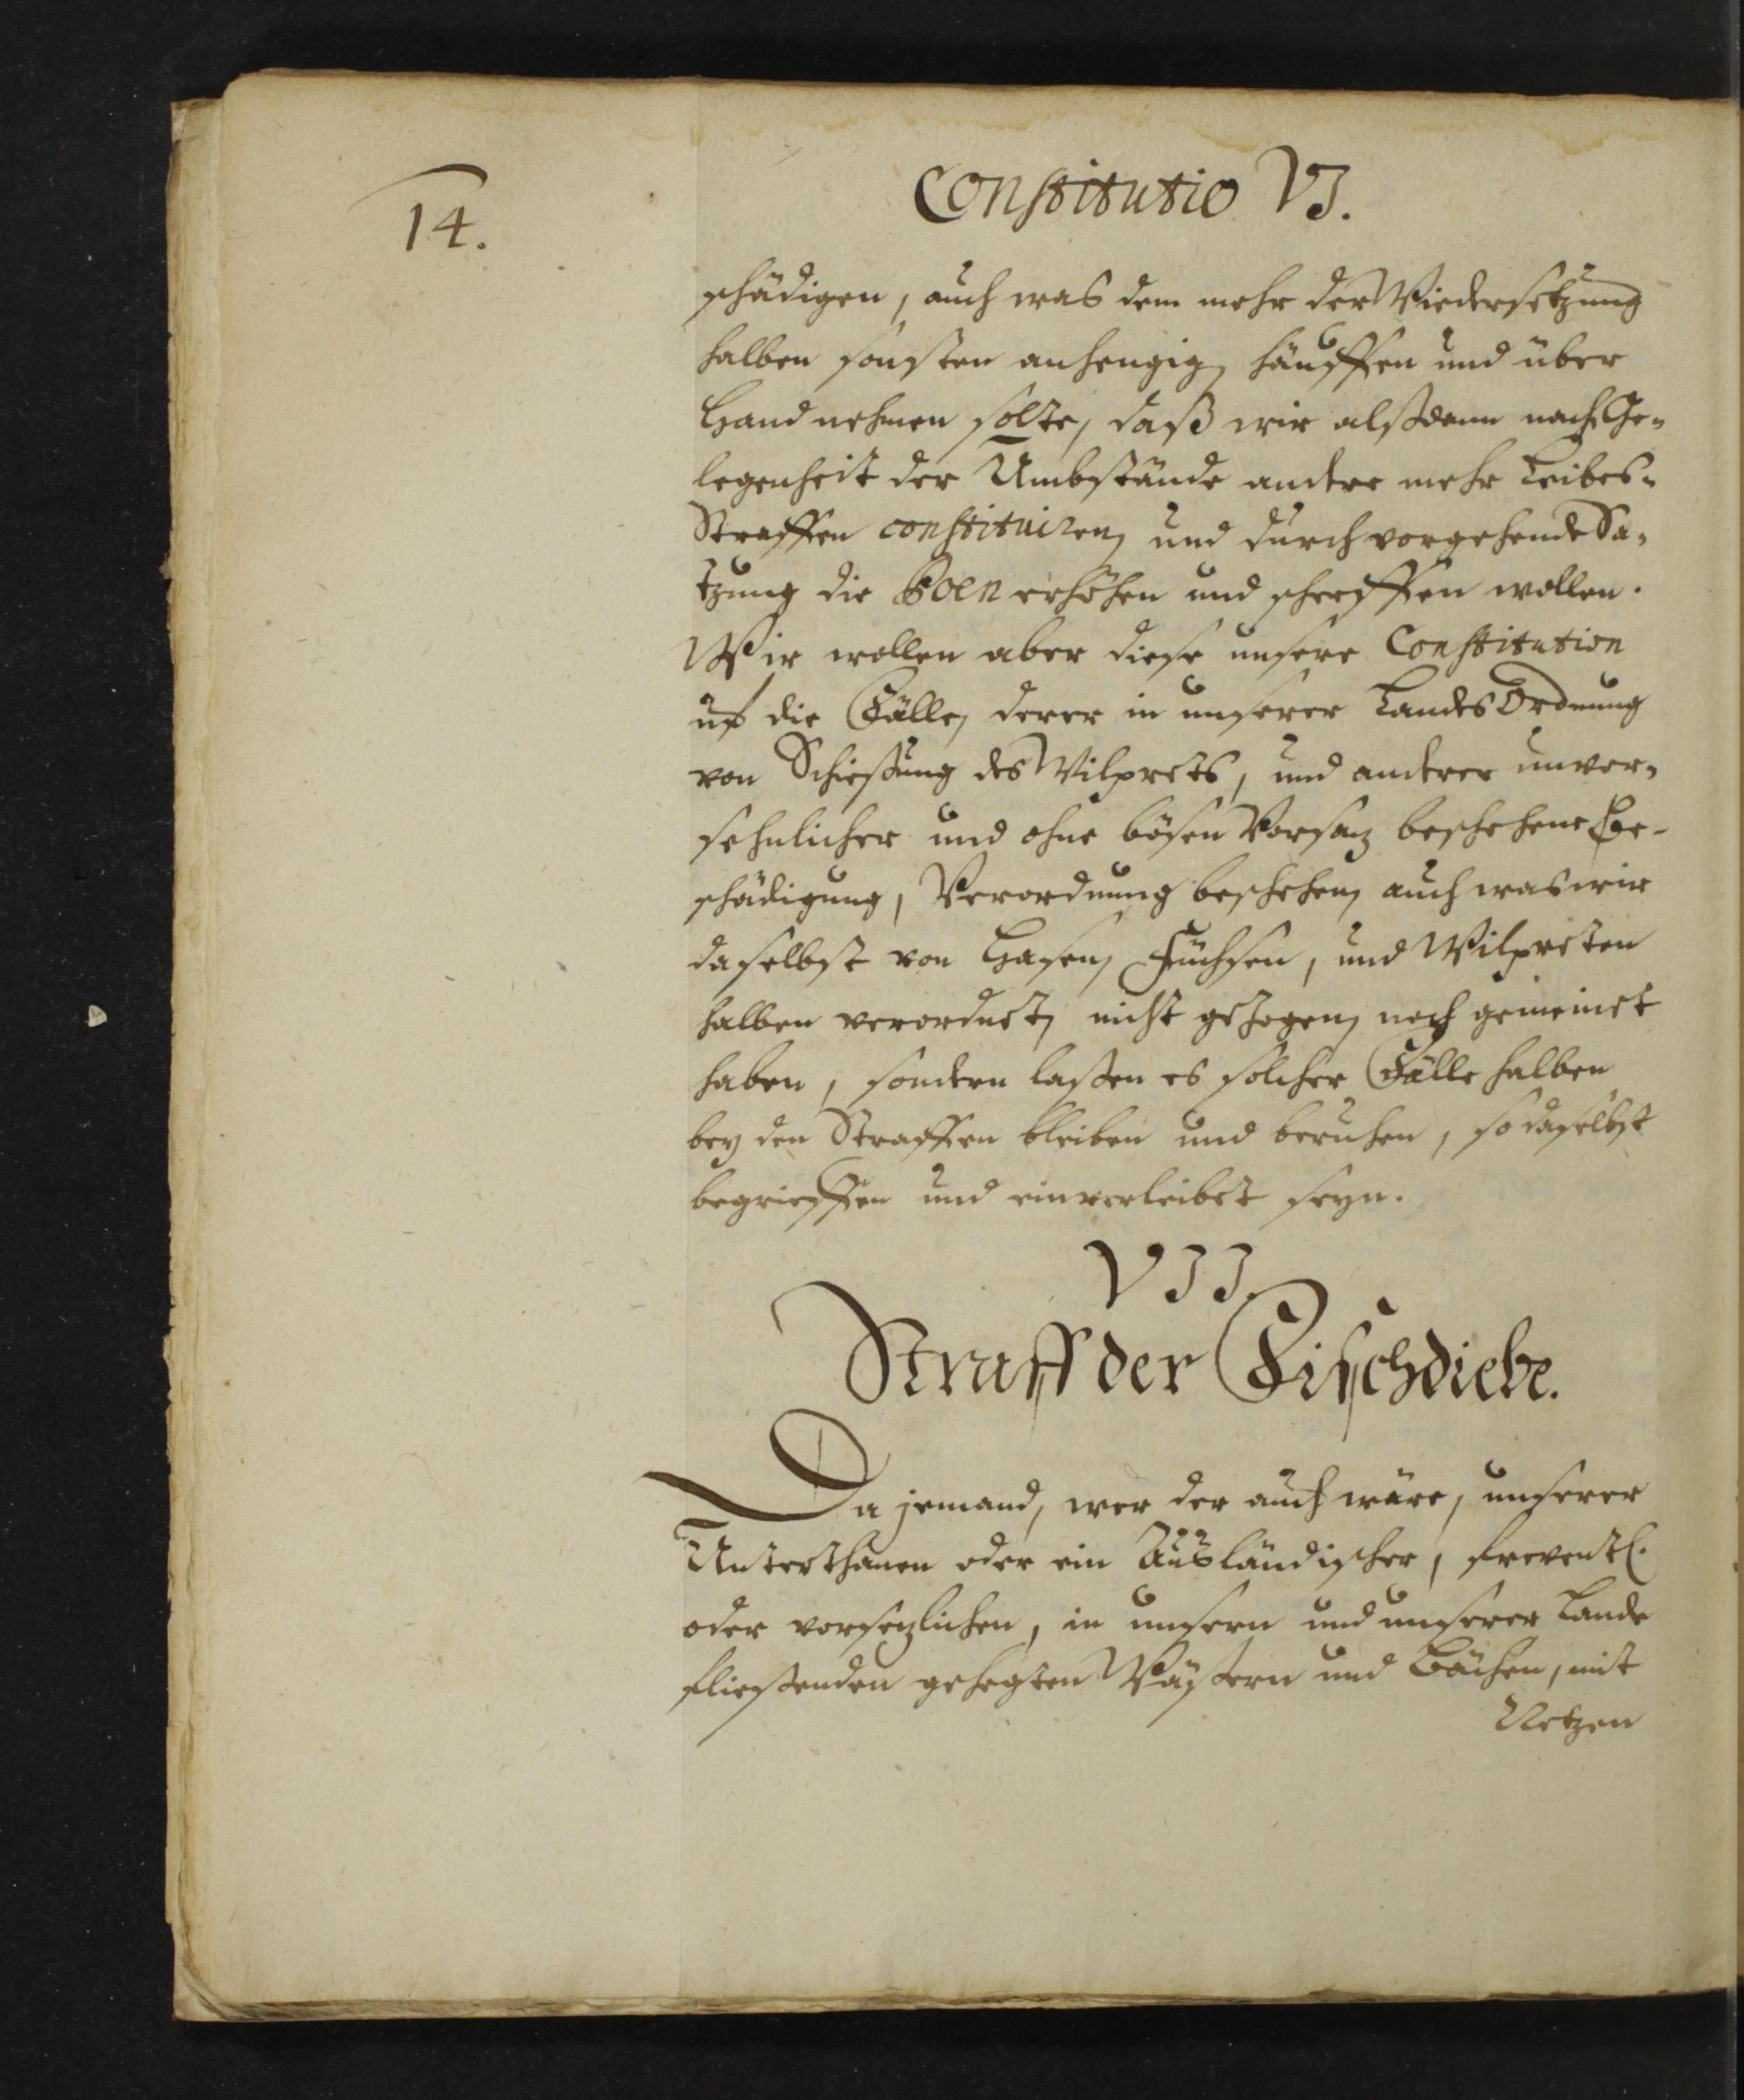 14.
Constitutio VI.
schädigen, auch was dem mehr der Wiedersetzung
halben sonsten anhengig, häuffen und über
Hand nehmen solte, daß wir alßdann nach Ge-
legenheit der Umbstände andere mehr Leibes-
Straffen constituiren, und durch vorgehende Sa-
tzung die Poen erhöhen und scherffen wollen.
Wir wollen aber diese unsere Constitution
uf die Fälle, derer in unserer Landes Ordnung
von Schießung des Wilprets, und anderer unver-
sehnlicher und ohne bösen Vorsaz beschehene Be-
schädigung, Verordnung beschehen, auch was wir
daselbst von Hasen, Füchsen, und Wilpreten
halben verordnet, nicht gezogen, noch gemeinet
haben, sondern laßen es solcher Fälle halben
bey den Straffen bleiben und beruhen, so daselbst
begrieffen und einverleibet seyn.
VII.
Straff der Fischdiebe.
Da jemand, wer der auch wäre, unserer
Unterthanen oder ein Ausländischer, freventl.
oder vorsezlichen, in unsern und unserer Lande
fließenden gehegten Wäßern und Bächen, mit
Netzen